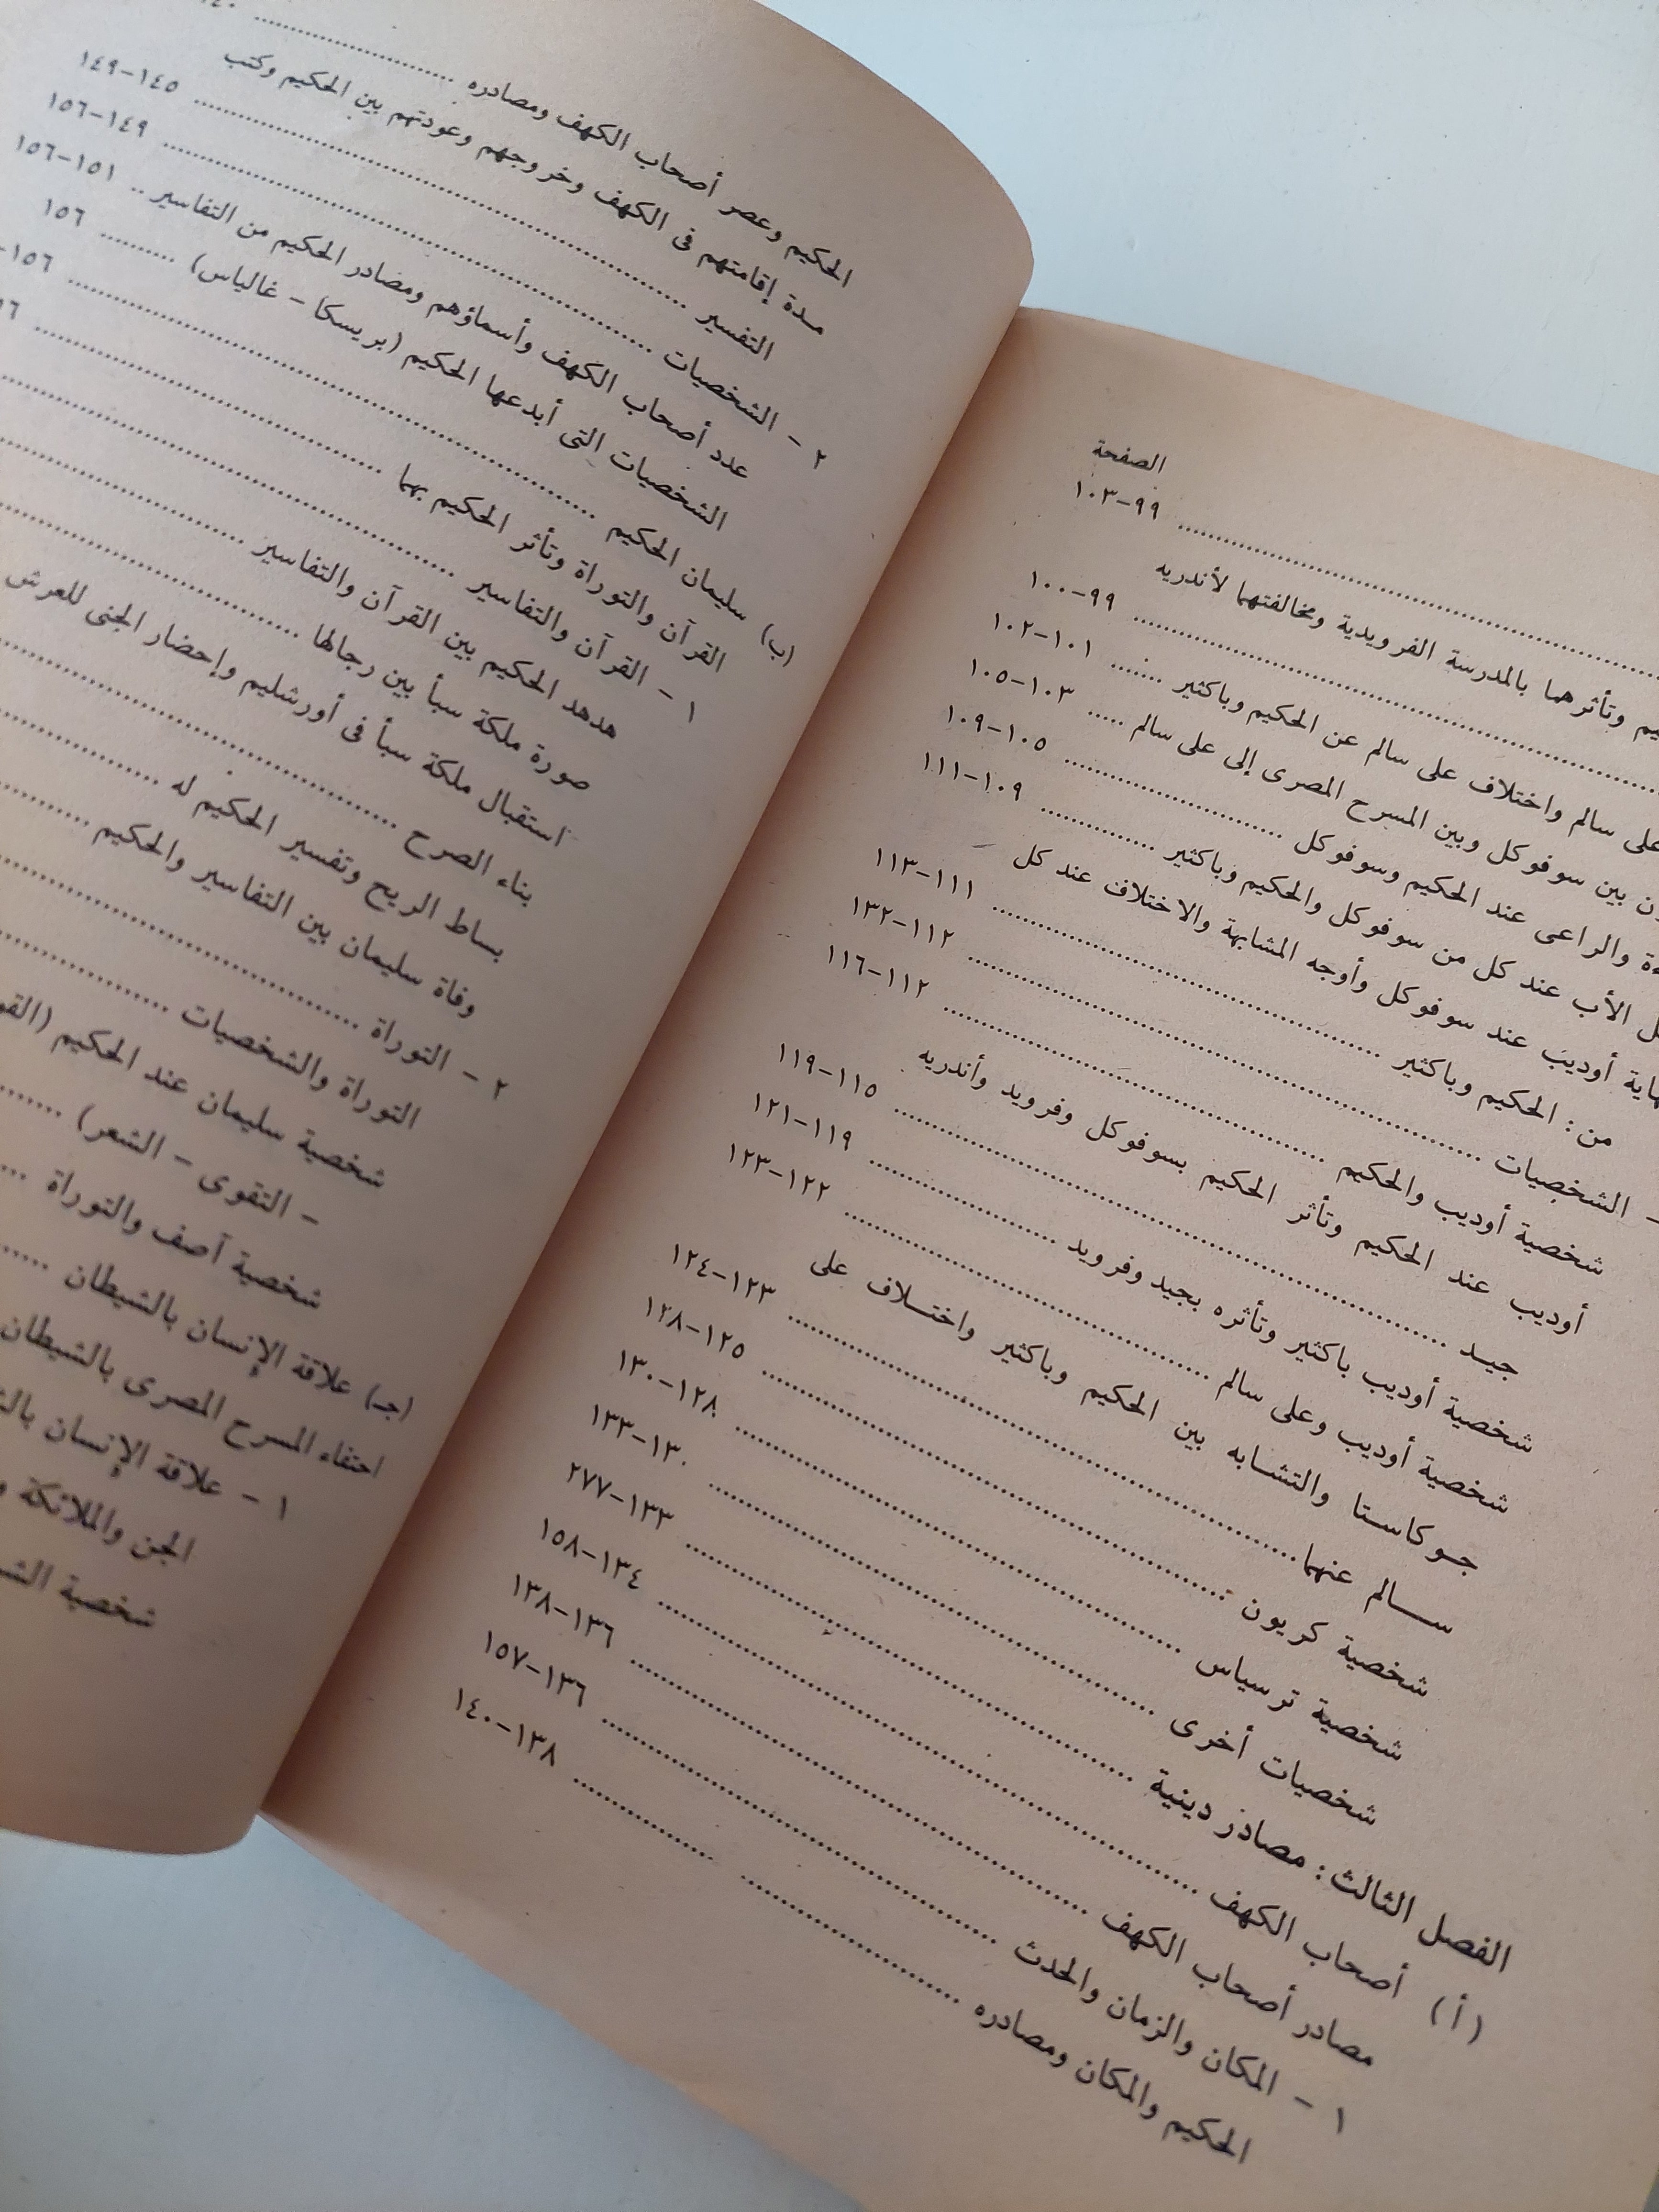 الصفحة
٩٩-١٠٣
وتأثرهما بالمدرسة الفرويدية ومخالفتهما لأندريه
٩٩-١٠٠
على سالم واختلاف على سالم عن الحكيم وباكثير ...... ١٠١-١٠٢
بين سوفوكل وبين المسرح المصرى إلى على سالم ..... ١٠٣-١٠٥
والراعى عند الحكيم وسوفوكل ........ ١٠٥-١٠٩
الأب عند كل من سوفوكل والحكيم وباكثير ........ ١٠٩-١١١
أوديب عند سوفوكل وأوجه المشابهة والاختلاف عند كل
من : الحكيم وباكثير ........ ١١١-١١٣
- الشخصيات ........ ١١٢-١٣٢
شخصية أوديب والحكيم ........ ١١٢-١١٦
أوديب عند الحكيم وتأثر الحكيم بسوفوكل وفرويد وأندريه
جيد ........ ١١٥-١١٩
شخصية أوديب باكثير وتأثره بجيد وفرويد ........ ١١٩-١٢١
شخصية أوديب وعلى سالم ........ ١٢٢-١٢٣
جوكاستا والتشابه بين الحكيم وباكثير واختلاف على
سالم عنهما ........ ١٢٣-١٢٤
شخصية كريون ........ ١٢٥-١٢٨
شخصية ترسياس ........ ١٢٨-١٣٠
شخصيات أخرى ........ ١٣٠-١٣٣
الفصل الثالث : مصادر دينية ........ ١٣٣-٢٧٧
(أ) أصحاب الكهف ........ ١٣٤-١٥٨
مصادر أصحاب الكهف ........ ١٣٦-١٣٨
١ - المكان والزمان والحدث ........ ١٣٦-١٥٧
الحكيم والمكان ومصادره ........ ١٣٨-١٤٠
الحكيم وعصر أصحاب الكهف ومصادره ........
مدة إقامتهم فى الكهف وخروجهم وعودتهم بين الحكيم وكتب
التفسير ........ ١٤٥-١٤٩
٢ - الشخصيات ........ ١٤٩-١٥٦
عدد أصحاب الكهف وأسماؤهم ومصادر الحكيم من التفاسير .. ١٥١-١٥٦
الشخصيات التى أبدعها الحكيم (بريسكا - غالياس) ........ ١٥٦
(ب) سليمان الحكيم ........ ١٥٦-
القرآن والتوراة وتأثر الحكيم بهما ........
١ - القرآن والتفاسير ........
هدهد الحكيم بين القرآن والتفاسير ........
صورة ملكة سبأ بين رجالها ........
استقبال ملكة سبأ فى أورشليم وإحضار الجنى للعرش
بناء الصرح ........
بساط الريح وتفسير الحكيم له ........
وفاة سليمان بين التفاسير والحكيم ........
٢ - التوراة ........
التوراة والشخصيات ........
شخصية سليمان عند الحكيم
- التقوى - الشعر) ........
شخصية آصف والتوراة ....
(جـ) علاقة الإنسان بالشيطان ......
احتفاء المسرح المصرى بالشيطان
١ - علاقة الإنسان
الجن والملائكة
شخصية